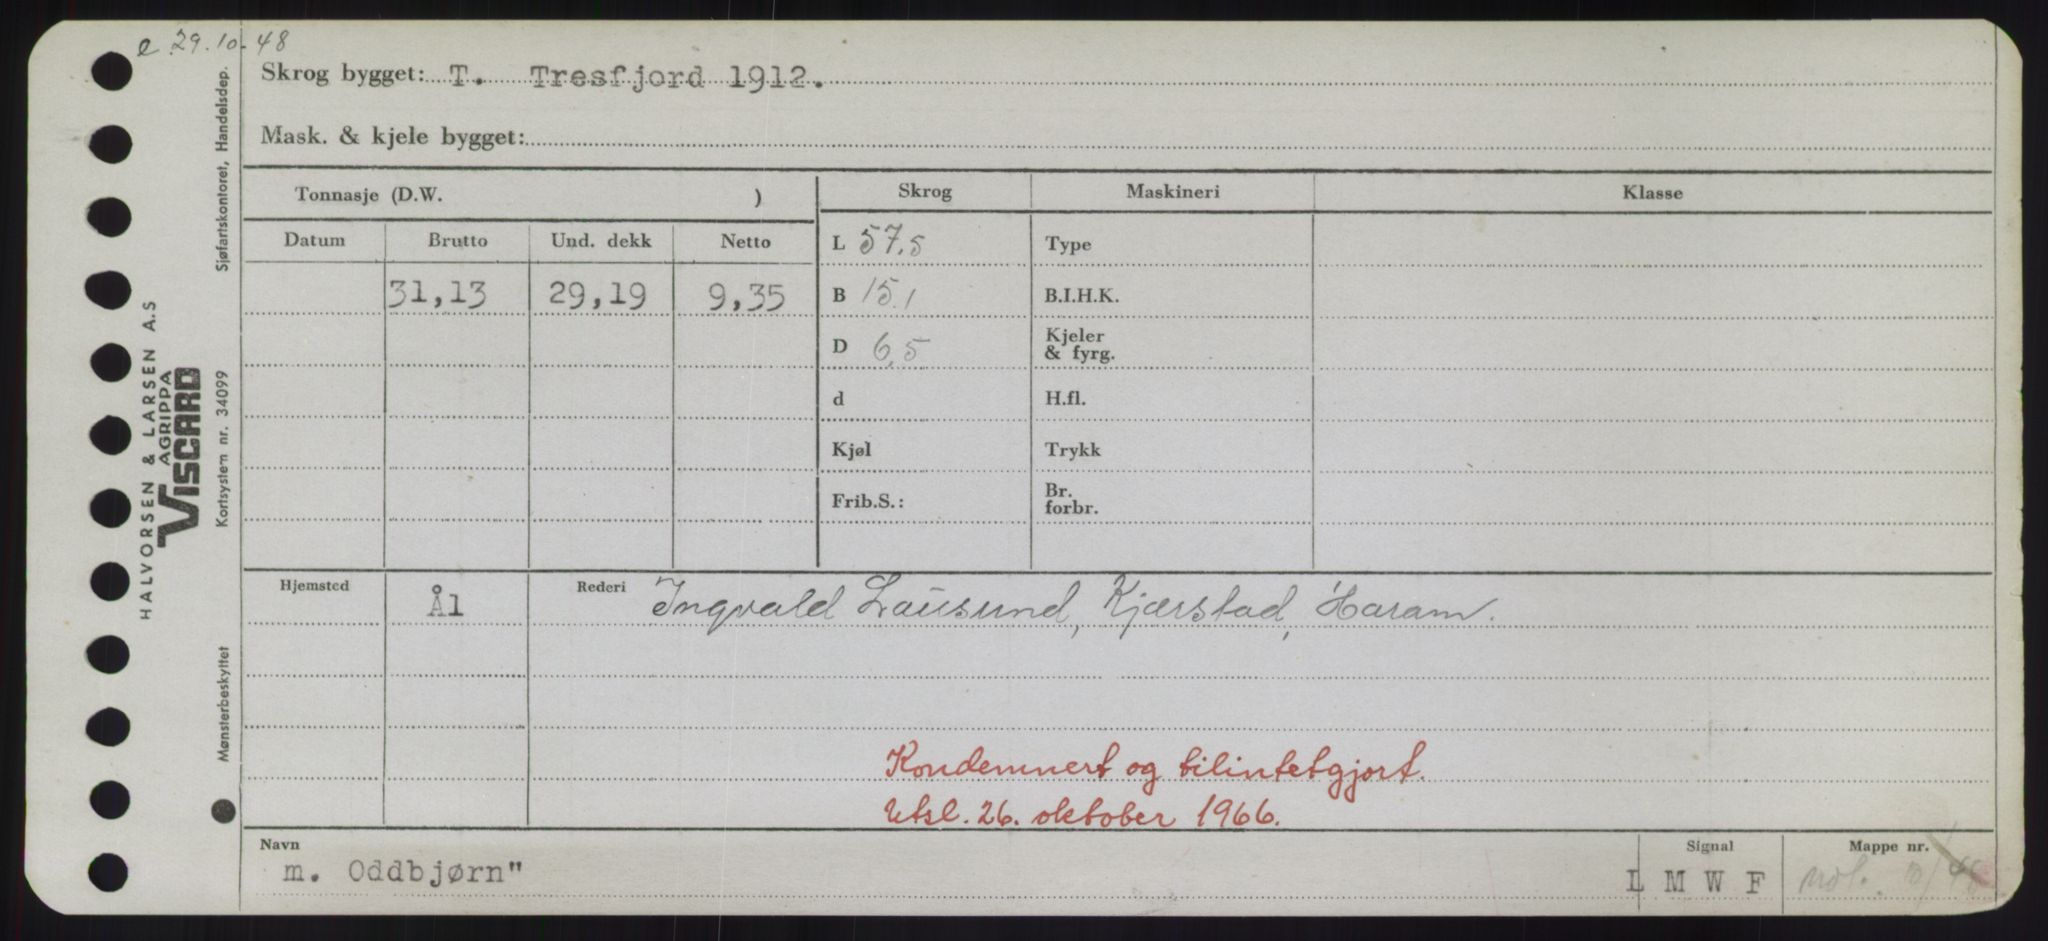 e 29.10-48
Skrog bygget: T. Tresfjord 1912.
Mask. & kjele bygget:
Tonnasje (D.W. )
Skrog Maskineri Klasse
Datum Brutto Und. dekk Netto
L 57,5 Type
31,13 29,19 9,35
B 15.1 B.I.H.K.
D 6,5 Kjeler & fyrg.
d H.fl.
Kjøl Trykk
Frib.S.: Br. forbr.
Hjemsted Ål Rederi Ingvald Lausund, Kjærstad, Haram.
Kondemnert og tilintetgjort.
Utsl. 26. oktober 1966.
Navn Signal Mappe nr.
m. Oddbjørn" L M W F
HALVORSEN & LARSEN A.S
AGRIPPA
VISCARD
Mønsterbeskyttet Kortsystem nr. 34099 Sjøfartskontoret, Handelsdep.